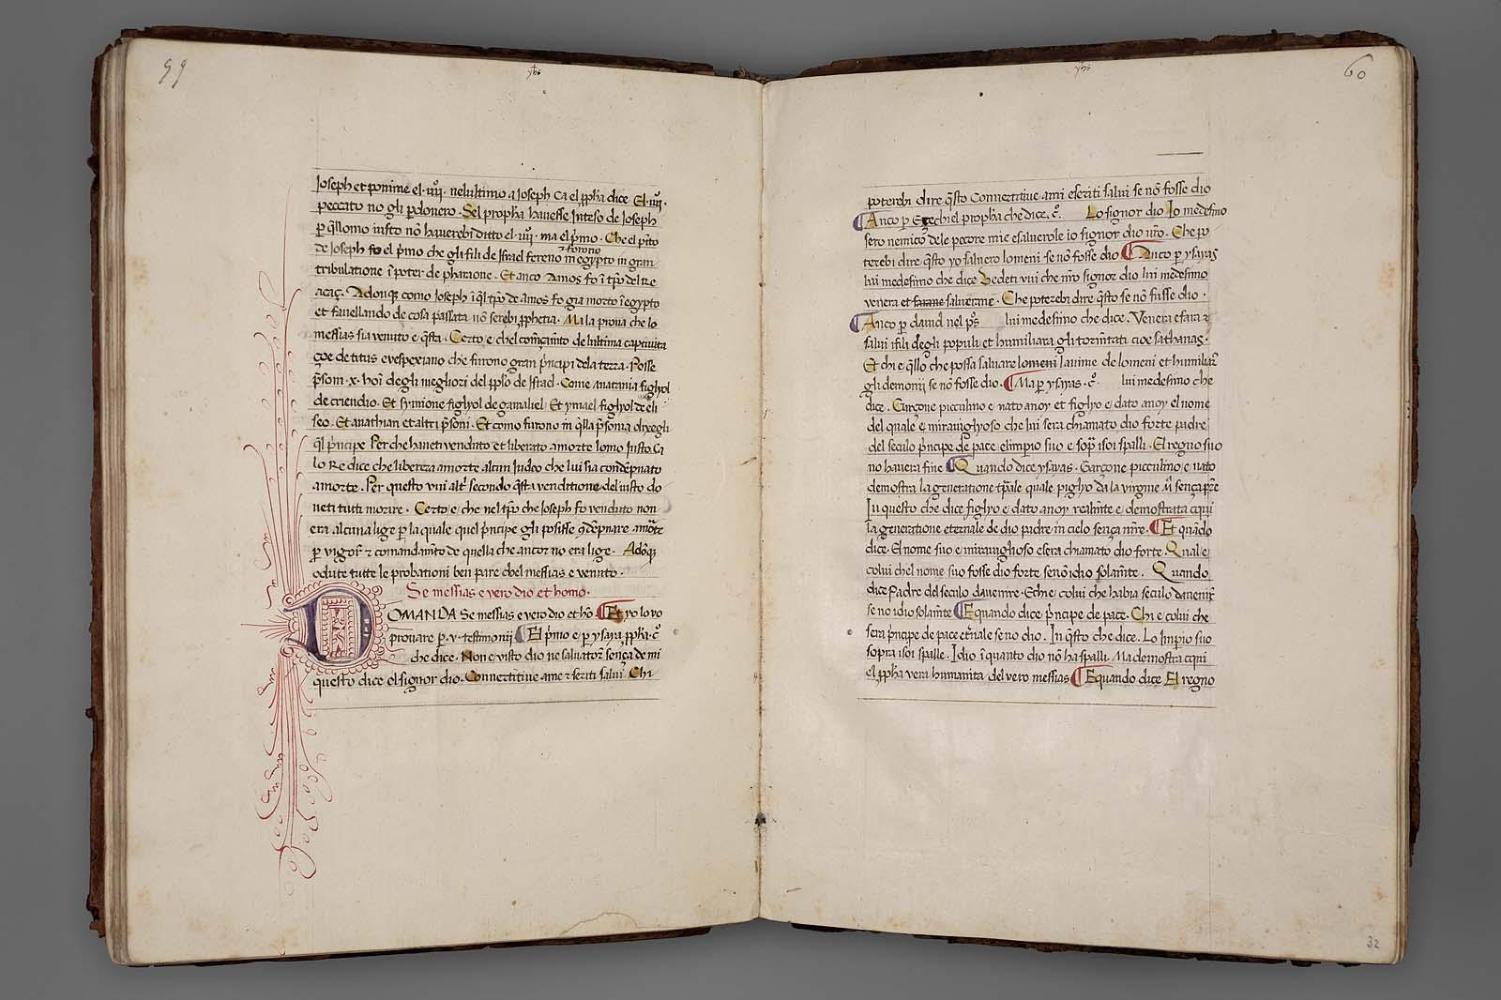 59
yhs
Joseph et ponime el .iiij. nelultimo a Joseph Ca el ppha dice El .iiij.
peccato no gli pdonero. Sel propha havesse inteso de Joseph
p qllomo iusto nō haverebi ditto el .iiij. ma el pimo. Che el pcto
de Joseph fo el pimo che gli fili de Israel fereno in egypto in gran
tribulatione i poter de pharaone. Et anco Amos fo i tpo del Re
Adonque como Joseph i ql tpo de amos fo gia morto i egypto
et favellando de cosa passata nō serebi pphetia. Ma la prova che lo
messias sia venuto e qsta. Certo e chel comēçamēto de lultima captivita
çoe de titus e vespexiano che furono gran pncipi dela terra. Posse
psoni .x. hoi degli megliori del pplo de Israel. Come anania figliol
de criendio. Et symione figlyol de gamaliel. Et ymael figlyol de eli
seo. Et anathan et altri psoni. Et como furono in qlla psonia
ql pncipe Per che haveti venduto et liberato amorte lomo iusto. Ca
lo Re dice che liberera amorte alcun iudeo che lui sia condēpnato
amorte. Per questo vui alt secondo qsta venditione del iusto do
veti tutti morire. Certo e che nel tpo che Joseph fo venduto non
era alcuna lige p la quale quel pncipe gli posisse 9dēpnare amorte
p vigor e comandamēto de quella che ancor no era lige. Adōq
odute tutte le probationi ben pare chel messias e venuto.
Se messias e vero dio et homo.
DOMANDA Se messias e vero dio et hō. Et yo lo vo
provare p .v. testimonij El pimo e p ysaya ppha. c̄
che dice. Non e visto dio ne salvator sença de mi
questo dice el signor dio. Convertitive ame e seriti salui. Chi
60
yhs
poterebi dire qsto Convertitive ami eseriti salui se nō fosse dio
Anco p Ezechiel propha che dice. c̄. Lo signor dio Io medesimo
sero nemico dele pecore mie esalverole io signor dio vro. Che po
terebi dire qsto yo salvero lomeni se nō fosse dio Anco p ysayas
lui medesimo che dice Vedeti vui che nro signor dio lui medesimo
venera et salverane. Che poterebi dire qsto se nō fusse dio.
Anco p david nel ps lui medesimo che dice. Venera e fara
salvi i fili degli populi et humiliara gli tormētati çoe sathanas.
Et chi e qllo che possa salvare lomeni lanime de lomeni et humiliar
gli demonij se nō fosse dio. Ma p ysayas. c̄ lui medesimo che
dice. Garçone picculino e nato anoy et figlyo e dato anoy el nome
del quale e miraviglyoso che lui sera chiamato dio forte padre
del seculo pncipe de pace. elimpio suo e sop i soi spalli. El regno suo
no havera fine Quando dice ysayas. Garçone picculino e nato
demostra la generatione tpale quale piglyo da la virgine m sença pre
In questo che dice figlyo e dato anoy realmte e demostrata cqui
la generatione eternale de dio padre in cielo sença mre. Et quādo
dice. El nome suo e miraviglioso e sera chiamato dio forte. Qual e
colui chel nome suo fosse dio forte se nō idio solamte. Quando
dice Padre del seculo davenire. Echi e colui che habia seculo davenir
se no idio solamte Equando dice pncipe de pace. Chi e colui che
sera pncipe de pace etnale se no dio. In qsto che dice. Lo impio suo
sopra i soi spalle. Idio i quanto dio nō ha spalli. Ma demostra cqui
el ppha vera humanita del vero messias Equando dice El regno
32